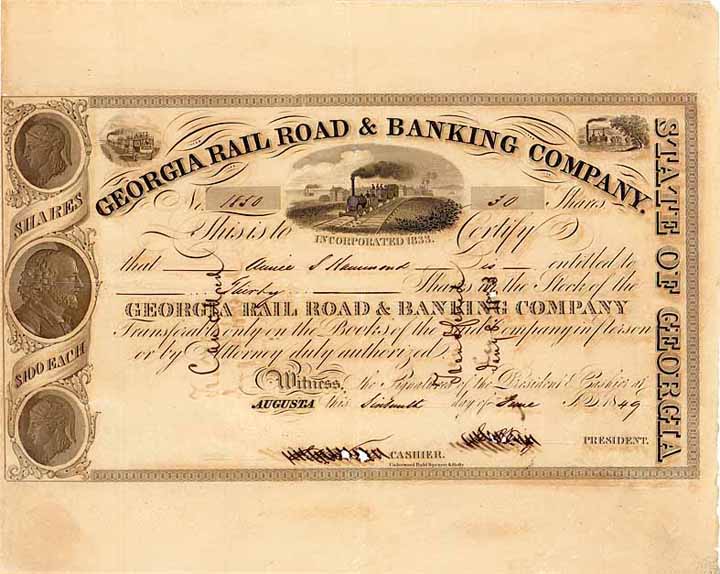 GEORGIA RAIL ROAD & BANKING COMPANY.
No. 1850 30 Shares
INCORPORATED 1833.
This is to Certify
that S Hammond is entitled to
Thirty Shares in the Stock of the
GEORGIA RAIL ROAD & BANKING COMPANY
Transferable only on the Books of the said Company in person
or by Attorney duly authorized.
Witness, the Signatures of the President & Cashier at
AUGUSTA this Sixteenth day of June A.D. 1849
PRESIDENT.
CASHIER.
Underwood Bald Spencer & Hufty
SHARES
$100 EACH
STATE OF GEORGIA
Cancelled